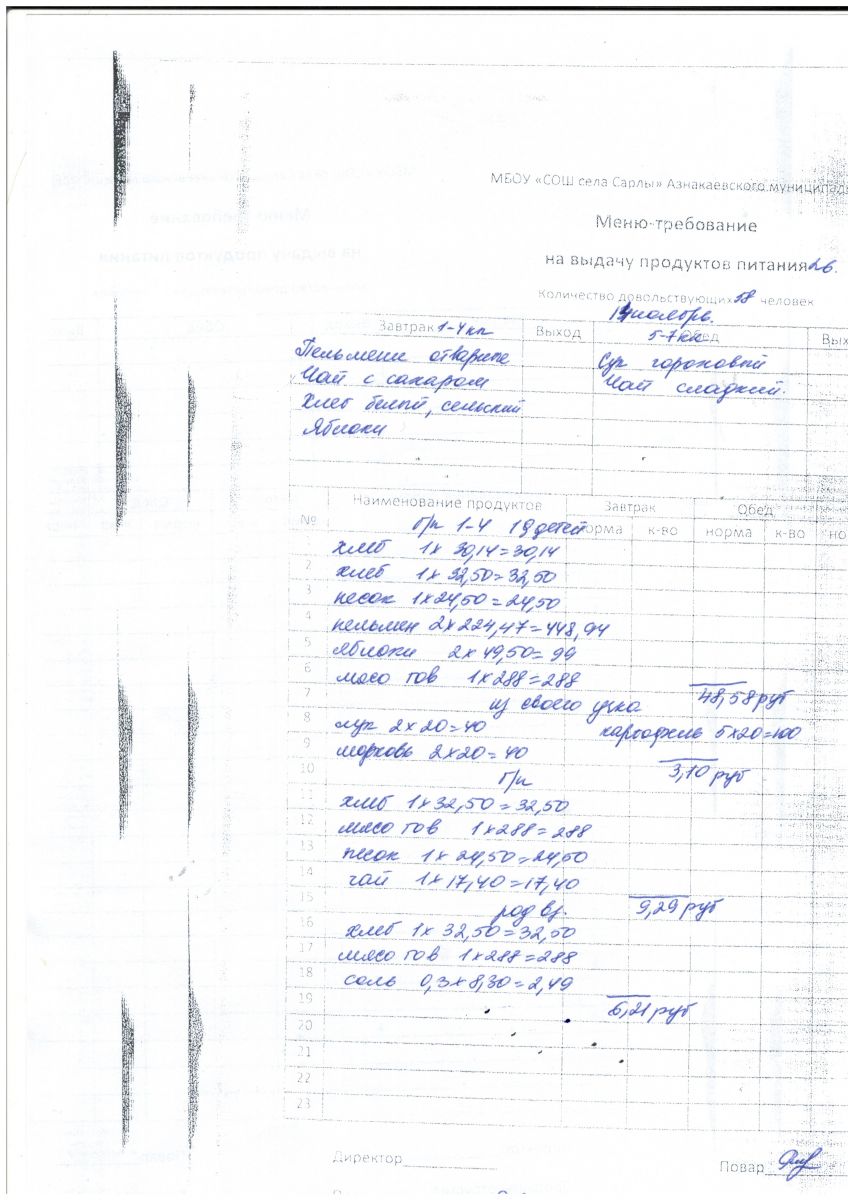 МБОУ «СОШ села Сарлы» Азнакаевского муниципаль
Меню-требование
на выдачу продуктов питания 26.
Количество довольствующих 58 человек
14 ноября.
Завтрак 1-4 кл Выход 5-7 кл Обед Вых
Пельмени отварные Суп гороховый
Чай с сахаром Чай сладкий.
Хлеб белый, сельский
Яблоки
Наименование продуктов Завтрак Обед
№ б/п 1-4 19 детей норма к-во норма к-во но
1 хлеб 1х 30,14=30,14
2 хлеб 1х 32,50=32,50
3 песок 1х24,50=24,50
4 пельмен 2х224,47=448,94
5 яблоки 2х 49,50=99
6 мясо гов 1х288=288
7 48,58 руб
из своего
8 лук 2х20=40 картофель 5х20=100
9 морковь 2х20=40
10 3,10 руб
б/п
11 хлеб 1х32,50=32,50
12 мясо гов 1х288=288
13 песок 1х24,50=24,50
14 чай 1х17,40=17,40
15 9,29 руб
род вз.
16 хлеб 1х 32,50=32,50
17 мясо гов 1х288=288
18 соль 0,3х8,30=2,49
19 6,21 руб
20
21
22
23
Директор Повар